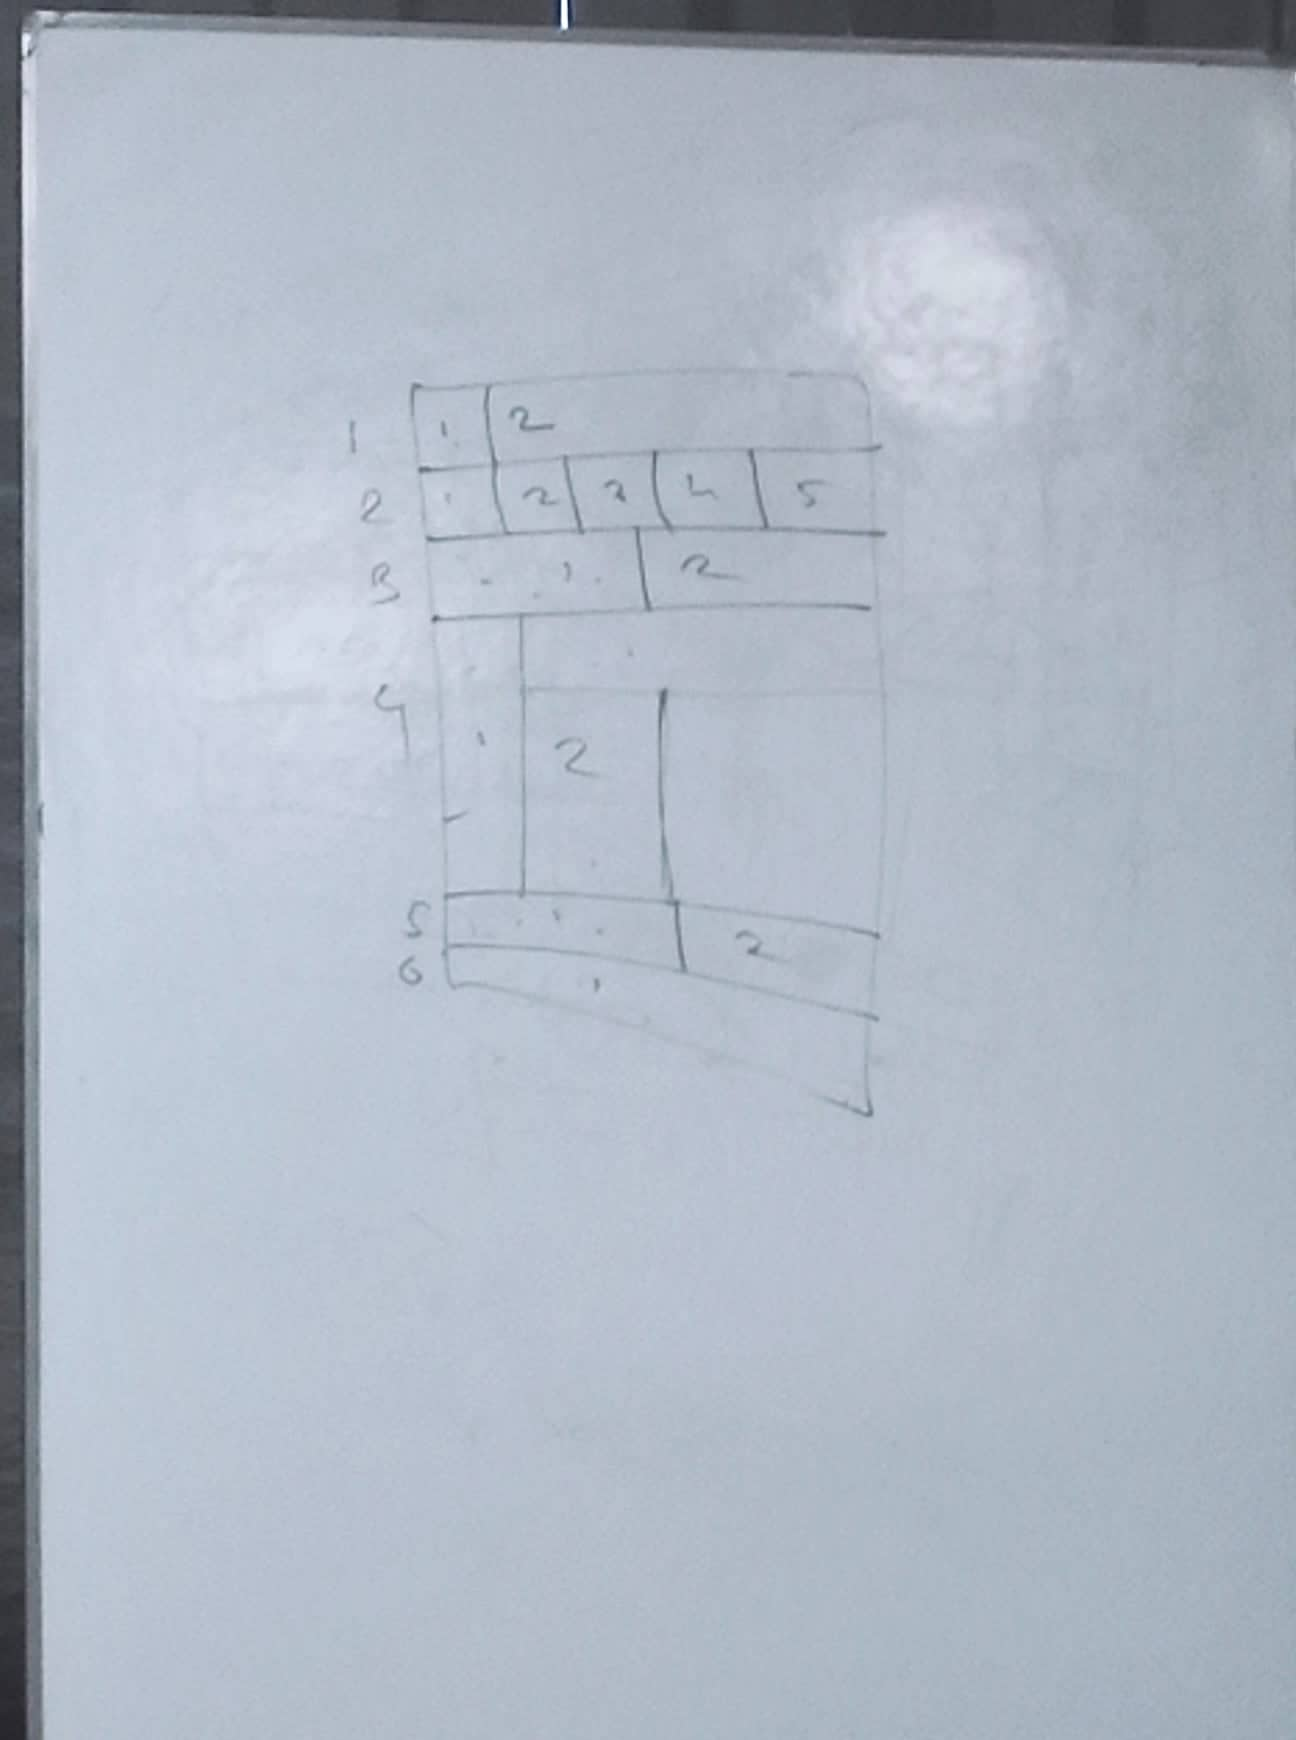 1 1 2
2 1 2 3 4 5
3 1 2
4 1 2
5 1 2
6 1